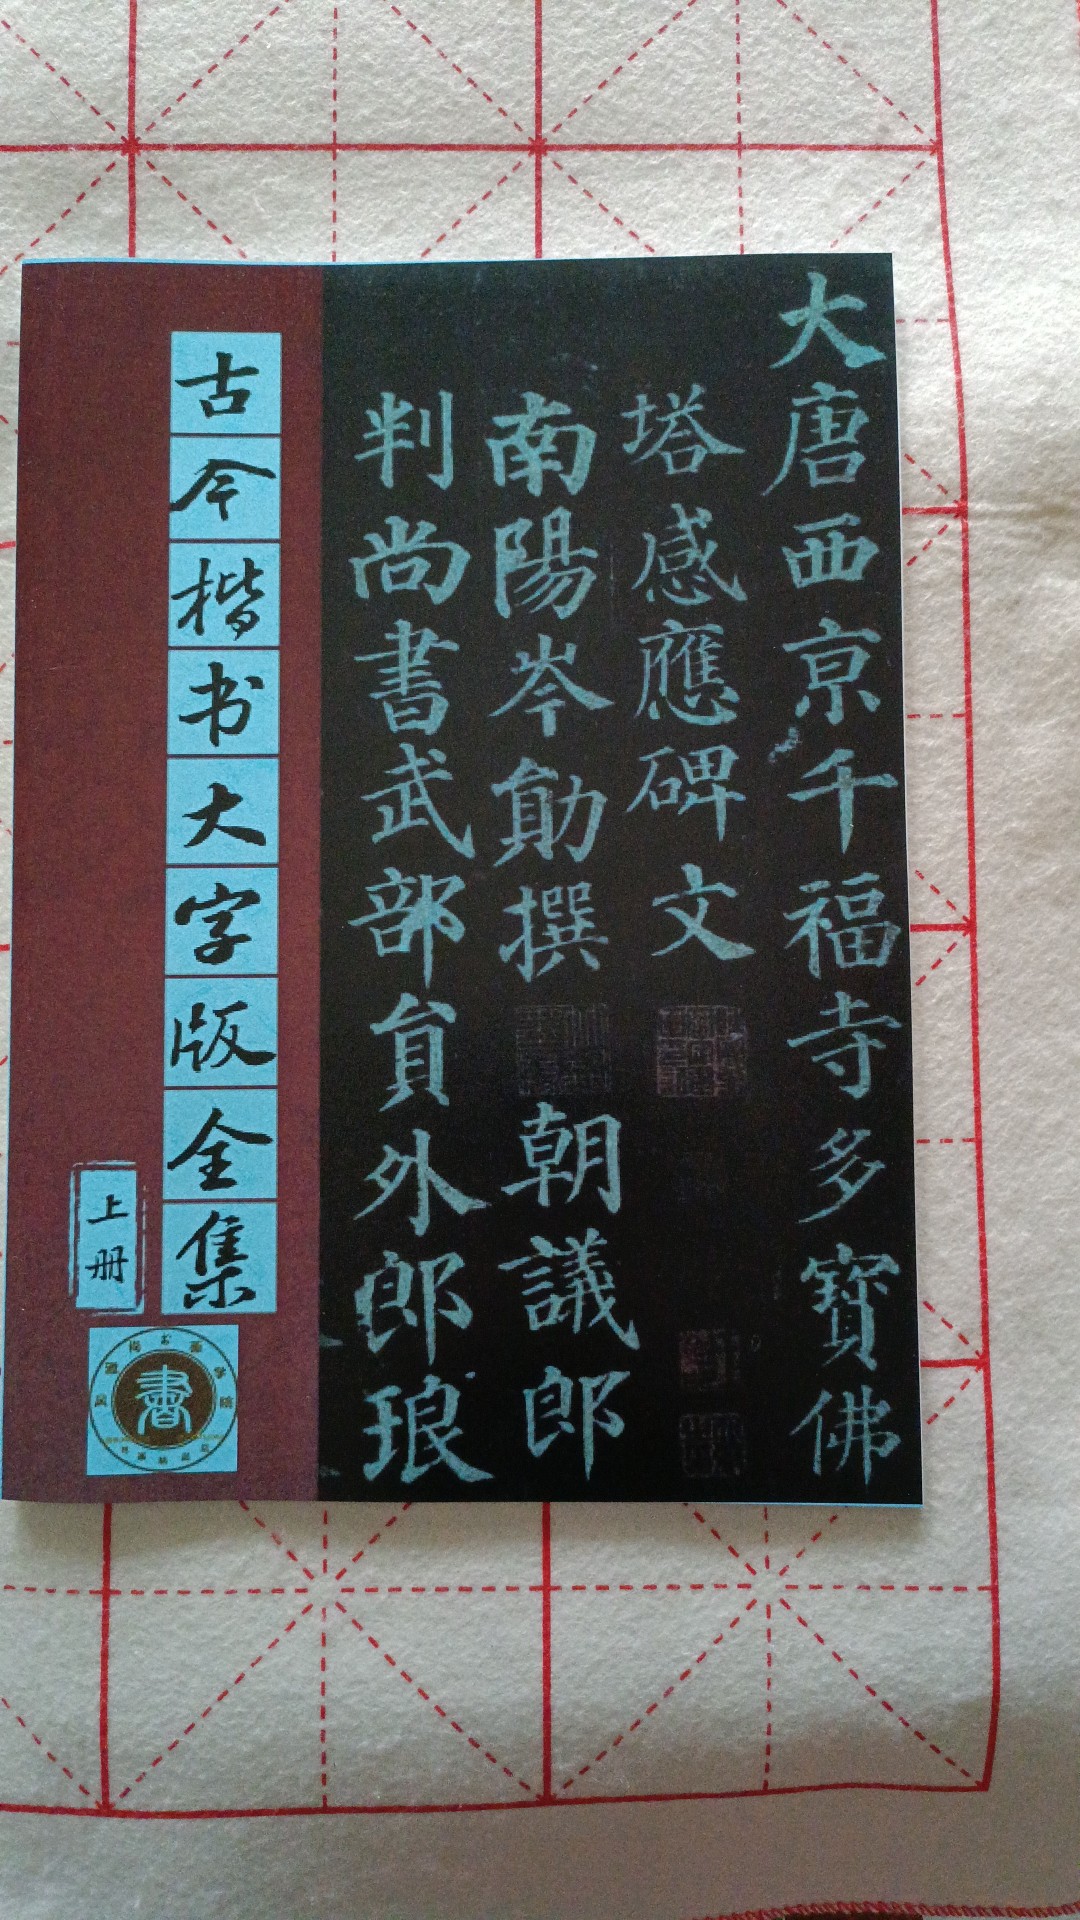 大唐西京千福寺多寶佛
塔感應碑文
南陽岑勛撰 朝議郎
判尚書武部員外郎琅
古今楷书大字版全集
上册
書